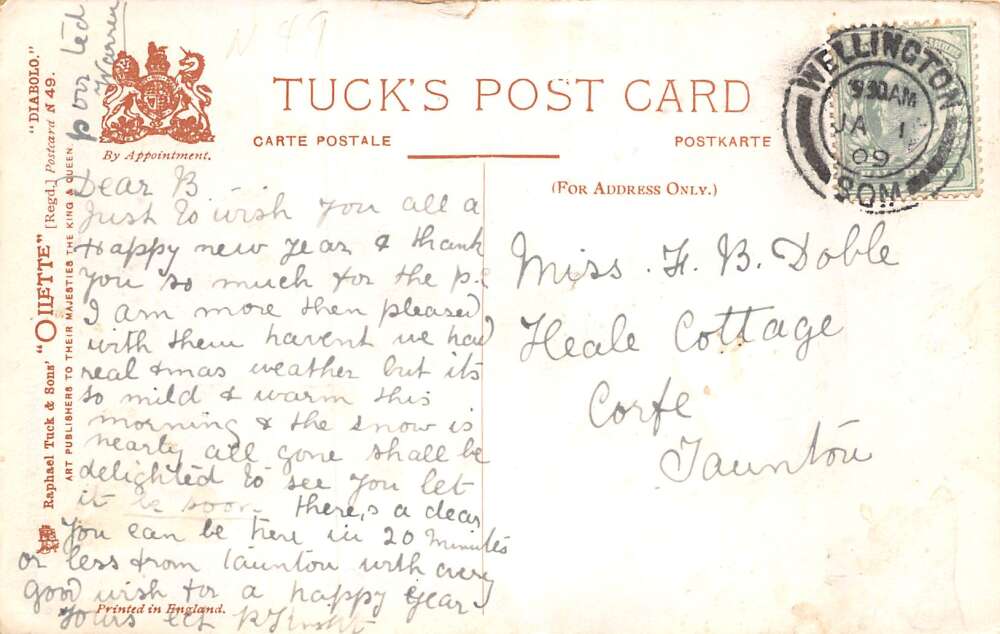 "DIABOLO."
Raphael Tuck & Sons' "OILETTE" [Regd.] Postcard N 49.
ART PUBLISHERS TO THEIR MAJESTIES THE KING & QUEEN.
poor Ted
Warren
By Appointment.
N 49
TUCK'S POST CARD
CARTE POSTALE
POSTKARTE
(FOR ADDRESS ONLY.)
WELLINGTON
9 30AM
JA 1
09
SOM
Dear B
Just to wish you all a
Happy new year & thank
you so much for the p.c
I am more then pleased
with them havent we had
real Xmas weather but its
so mild & warm this
morning & the snow is
nearly all gone shall be
delighted to see you let
it be soon. there,s a dear
You can be here in 20 minutes
or less from Taunton with every
good wish for a happy year
Yours ect
Printed in England.
Miss. F. B. Doble
Heale Cottage
Corfe
Taunton